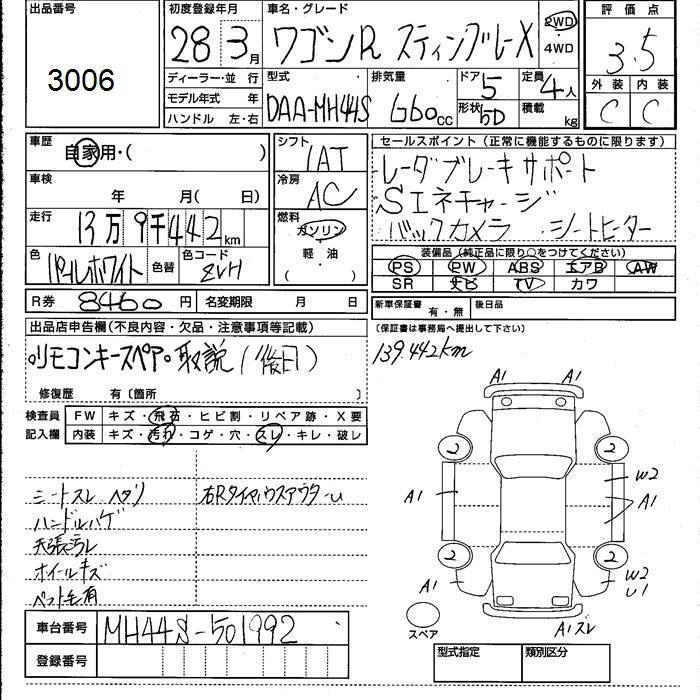 出品番号 初度登録年月 車名・グレード 評価点
3006 28年3月 ワゴンR スティングレーX 2WD・4WD 3.5
ディーラー・並 行 型式 排気量 ドア 5 定員 4人 外装 内装
モデル年式 年 DAA-MH44S 660cc 形状 5D 積載 kg C C
ハンドル 左・右
車歴 自家用・( ) シフト IAT セールスポイント (正常に機能するものに限ります)
レーダブレーキサポート
車検 年 月( 日) 冷房 AC Sエネチャージ
バックカメラ シートヒーター
走行 13万9千442km 燃料 ガソリン・軽油( )
色 パールホワイト 色替 色コード ZVH
装備品 (純正品に限り○をつけてください)
PS PW ABS エアB AW
SR ナビ TV カワ
R券 8460円 名変期限 月 日 新車保証書 有・無 後日品
(保証書は事務局へ提出して下さい)
出品店申告欄(不良内容・欠品・注意事項等記載)
139.442km
○リモコンキースペア○取説(後日)
修復歴 有〔箇所 〕
検査員記入欄 FW キズ・飛石・ヒビ割・リペア跡・X要
内装 キズ・汚れ・コゲ・穴・スレ・キレ・破レ
シートスレ ヘタリ 右RタイヤハウスアウターU
ハンドルハゲ
天張汚レ
ホイールキズ
ペット毛有
A1 A1
2 2
A1 W2
A1
2 2
A1 W2
U1
スペア A1スレ
車台番号 MH44S-501992
登録番号 型式指定 類別区分